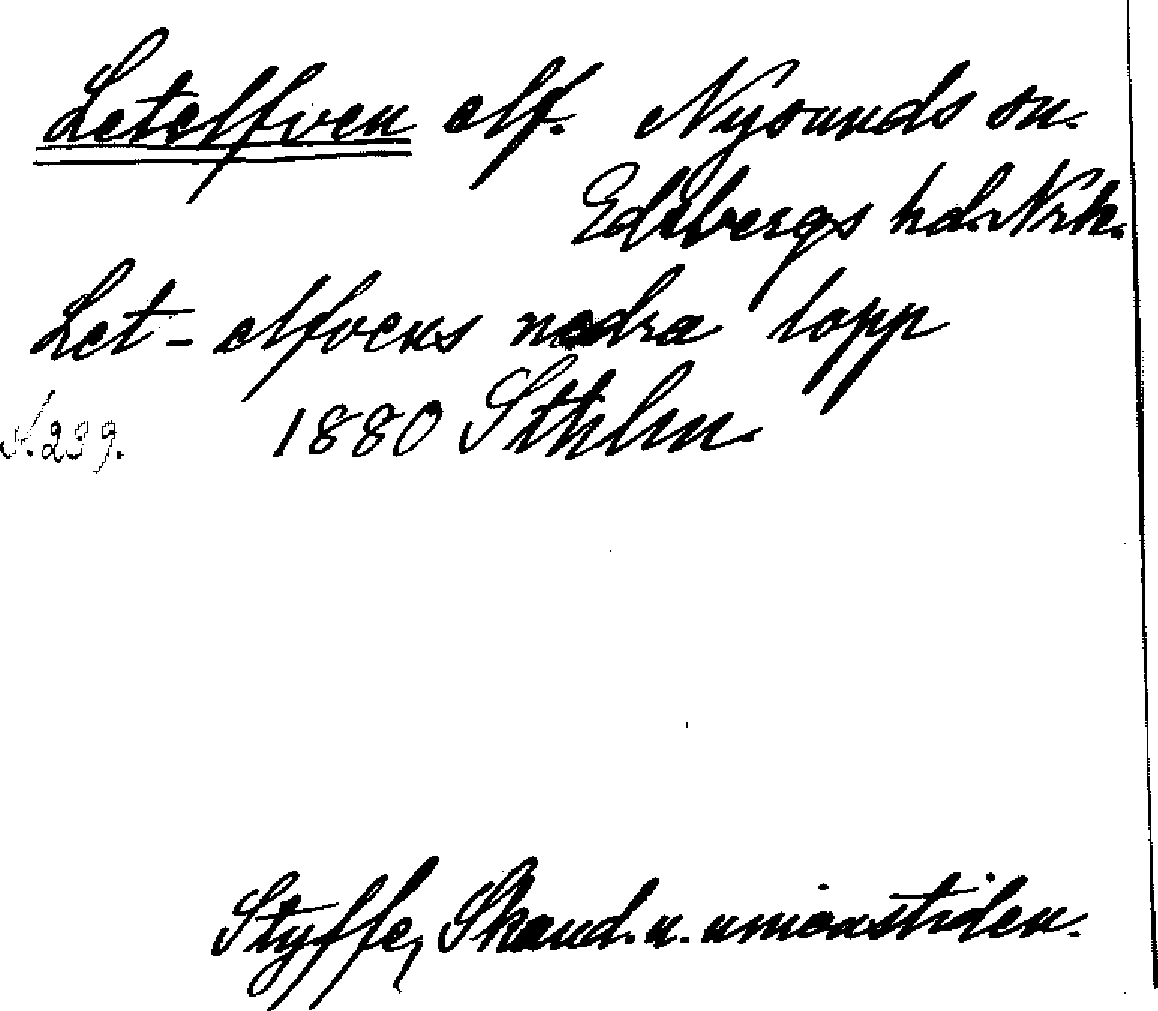 Letelfven elf. Nysunds sn.
Edsbergs hd. Nrk.
Let-elfvens nedra lopp
s. 239. 1880 Sthlm.
Styffe, Skand. u. unionstiden.